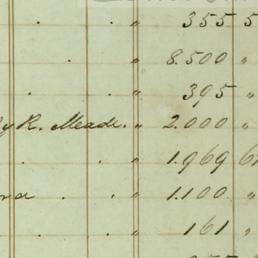 " 355 5
" 8.500 "
" 395 "
y R. Meade. " 2.000 "
" 1.969 6
" 1.100 "
" 161 "